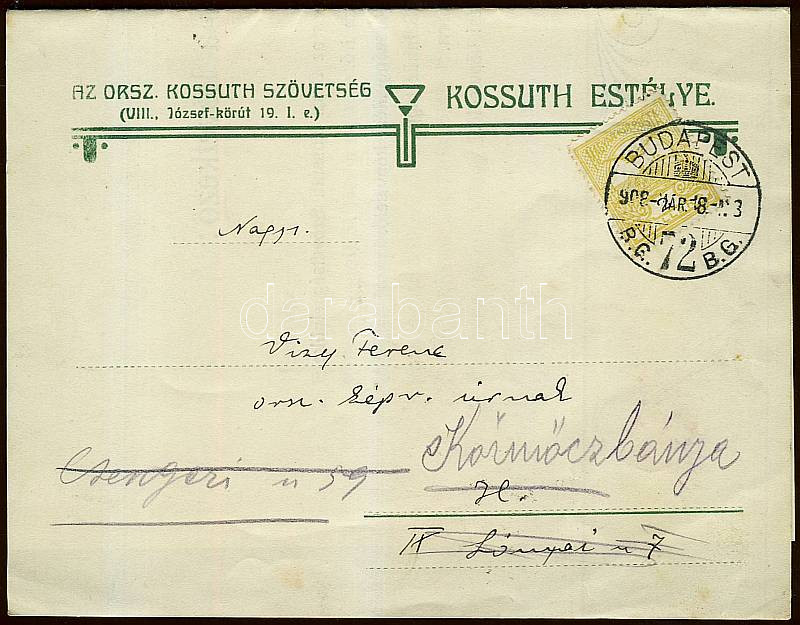 AZ ORSZ. KOSSUTH SZÖVETSÉG
(VIII., József-körút 19. I. e.)
KOSSUTH ESTÉLYE.
BUDAPEST
908 MÁR. 18
B.G. 72 B.G.
Nags.
darabanth
Vizy Ferenc
orsz. képv. úrnak
Körmöczbánya
Csengeri u 59
IX Lónyai u 7